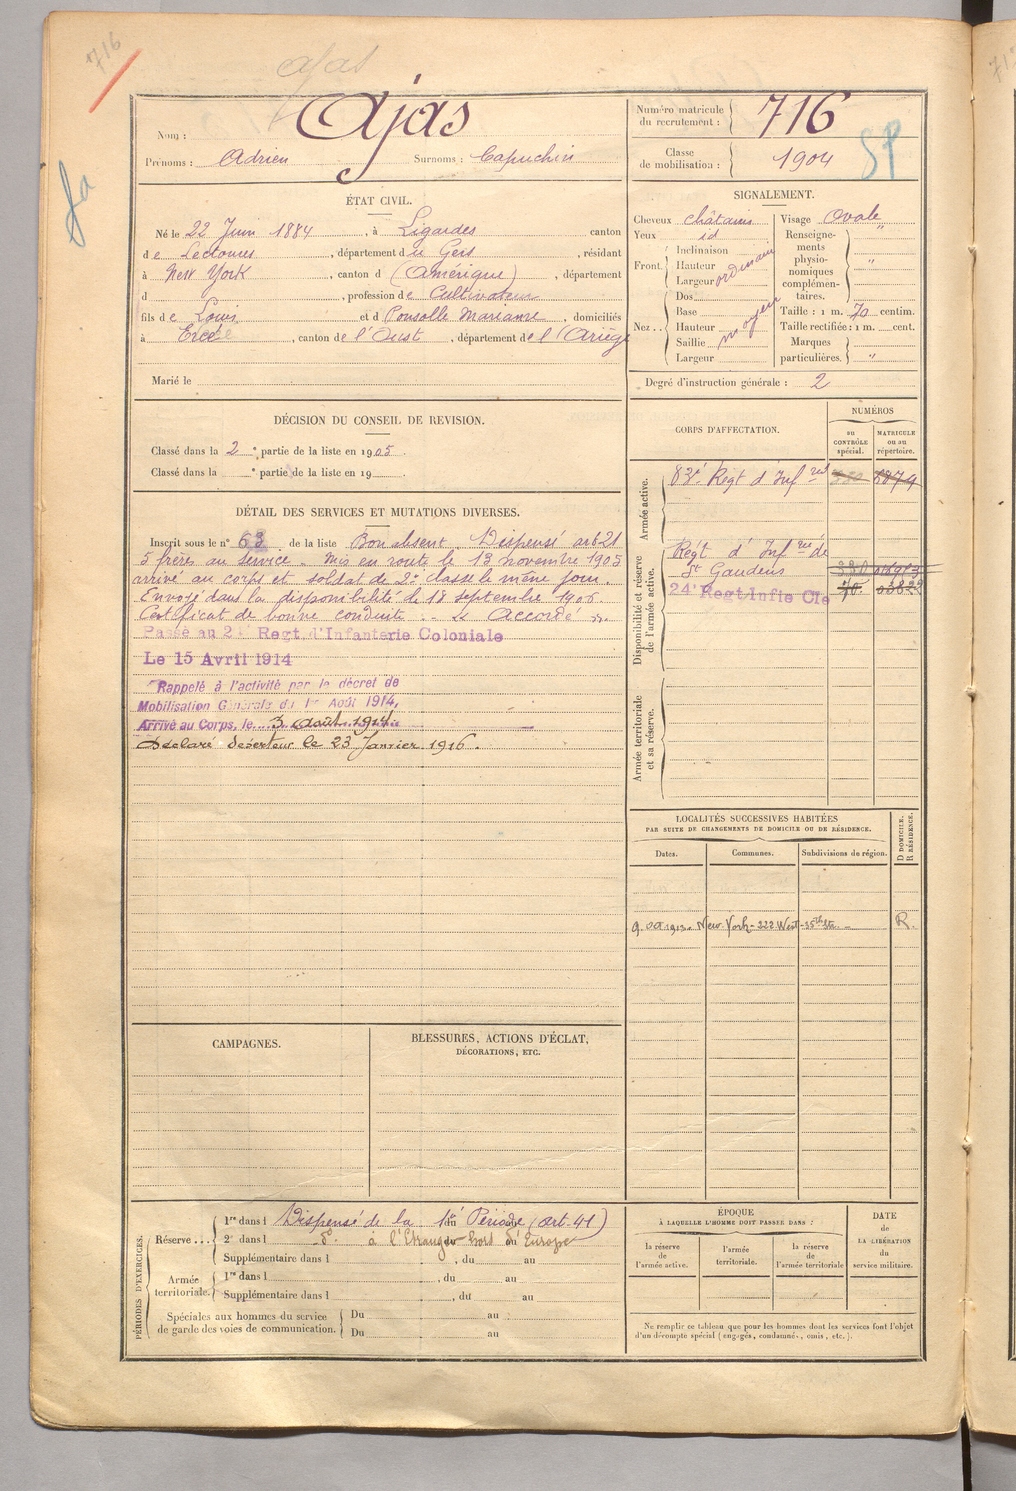 716
Ajas
Nom : Ajas
Prénoms : Adrien Surnoms : Capuchin
Numéro matricule du recrutement : 716
Classe de mobilisation : 1904
SP
ÉTAT CIVIL.
Né le 22 Juin 1884, à Ligardes canton
de Lectoure, département du Gers, résidant
à New York, canton d (Amérique), département
d , profession de Cultivateur
fils de Louis et d Pousolle Marianne, domiciliés
à Ercé, canton de l'Oust, département de l'(Ariège
Marié le
SIGNALEMENT.
Cheveux châtains
Yeux id
Front. Inclinaison
Hauteur
Largeur
ordinaire
Nez . . Dos
Base
Hauteur
Saillie
Largeur
moyen
Visage ovale
Renseignements physionomiques complémentaires. "
Taille : 1 m. 70 centim.
Taille rectifiée : 1 m. cent.
Marques particulières. "
Degré d'instruction générale : 2
DÉCISION DU CONSEIL DE REVISION.
Classé dans la 2e partie de la liste en 1905
Classé dans la e partie de la liste en 19
DÉTAIL DES SERVICES ET MUTATIONS DIVERSES.
Inscrit sous le n° 63 de la liste Bon absent Dispensé art 21
5 frères au service . Mis en route le 13 novembre 1905
arrivé au corps et soldat de 2e classe le même jour.
Envoyé dans la disponibilité le 18 septembre 1906.
Certificat de bonne conduite . . " Accordé ".
Passé au 2 Regt d'Infanterie Coloniale
Le 15 Avril 1914
Rappelé à l'activité par le décret de
Mobilisation Générale du 1er Août 1914,
Arrivé au Corps, le 3 Août 1914
Déclaré déserteur le 23 Janvier 1916.
CORPS D'AFFECTATION.
NUMÉROS
au CONTRÔLE spécial.
MATRICULE ou au répertoire.
Armée active.
83e Régt d'Infrie
Disponibilité et réserve de l'armée active.
Régt d'Infrie de
St Gaudens
24e Regt Infie Cle
Armée territoriale et sa réserve.
LOCALITÉS SUCCESSIVES HABITÉES
PAR SUITE DE CHANGEMENTS DE DOMICILE OU DE RÉSIDENCE.
Dates. Communes. Subdivisions de région. D DOMICILE. R RÉSIDENCE.
9. Oct 1913. New York - 222 West - 35th Str. R.
CAMPAGNES.
BLESSURES, ACTIONS D'ÉCLAT,
DÉCORATIONS, ETC.
PÉRIODES D'EXERCICES.
Réserve . . . 1re dans l Dispensé de la 1re du Période au (art-41)
2e dans l do à l'Etranger du hors au d'Europe
Supplémentaire dans l , du au
Armée territoriale. 1re dans l , du au
Supplémentaire dans l , du au
Spéciales aux hommes du service de garde des voies de communication. Du au
Du au
ÉPOQUE
À LAQUELLE L'HOMME DOIT PASSER DANS :
la réserve de l'armée active.
l'armée territoriale.
la réserve de l'armée territoriale
DATE de LA LIBÉRATION du service militaire.
Ne remplir ce tableau que pour les hommes dont les services font l'objet
d'un décompte spécial (engagés, condamnés, omis, etc.).